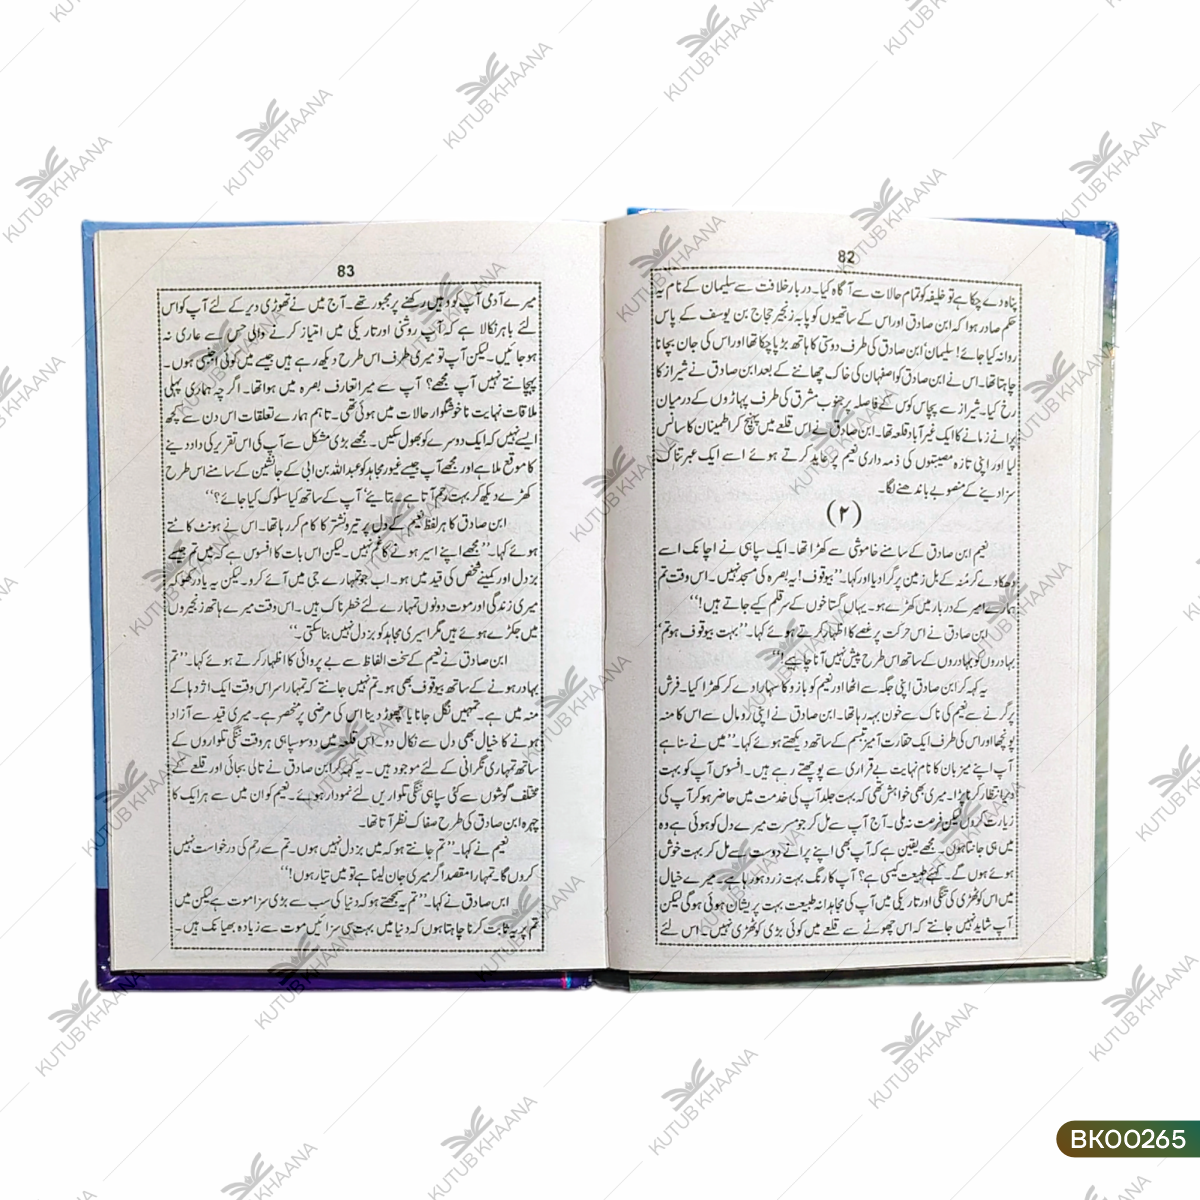 82
پناہ دے چکا ہے تو خلیفہ کو تمام حالات سے آگاہ کیا۔ دربار خلافت سے سلیمان کے نام یہ
حکم صادر ہوا کہ ابن صادق اور اس کے ساتھیوں کو پا بہ زنجیر حجاج بن یوسف کے پاس
روانہ کیا جائے! سلیمان ابن صادق کی طرف دوستی کا ہاتھ بڑھا چکا تھا اور اس کی جان بچانا
چاہتا تھا۔ اس نے ابن صادق کو اصفہان کی خاک چھاننے کے بعد ابن صادق نے شیراز کا
رخ کیا۔ شیراز سے پچاس کوس کے فاصلہ پر جنوب مشرق کی طرف پہاڑوں کے درمیان
پرانے زمانے کا ایک غیر آباد قلعہ تھا۔ ابن صادق نے اس قلعے میں پہنچ کر اطمینان کا سانس
لیا اور اپنی تازہ مصیبتوں کی ذمہ داری نعیم پر عاید کرتے ہوئے اسے ایک عبرتناک
سزا دینے کے منصوبے باندھنے لگا۔
(۲)
نعیم ابن صادق کے سامنے خاموشی سے کھڑا تھا۔ ایک سپاہی نے اچانک اسے
دھکا دے کر منہ کے بل زمین پر گرا دیا اور کہا۔ ’’بیوقوف! یہ بصرہ کی مسجد نہیں۔ اس وقت تم
ہمارے امیر کے دربار میں کھڑے ہو۔ یہاں گستاخوں کے سر قلم کیے جاتے ہیں!‘‘
ابن صادق نے اس حرکت پر غصے کا اظہار کرتے ہوئے کہا۔ ’’بہت بیوقوف ہو تم‘
بہادروں کو بہادروں کے ساتھ اس طرح پیش نہیں آنا چاہیے!‘‘
یہ کہہ کر ابن صادق اپنی جگہ سے اٹھا اور نعیم کو بازو کا سہارا دے کر کھڑا کیا۔ فرش
پر گرنے سے نعیم کی ناک سے خون بہہ رہا تھا۔ ابن صادق نے اپنی رومال سے اس کا منہ
پونچھا اور اس کی طرف ایک حقارت آمیز تبسم کے ساتھ دیکھتے ہوئے کہا۔ ’’میں نے سنا ہے
آپ اپنے میزبان کا نام نہایت بے قراری سے پوچھتے رہے ہیں۔ افسوس آپ کو بہت
انتظار کرنا پڑا۔ میری بھی خواہش تھی کہ بہت جلد آپ کی خدمت میں حاضر ہو کر آپ کی
زیارت کروں لیکن فرصت نہ ملی۔ آج آپ سے مل کر جو مسرت میرے دل کو ہوئی ہے وہ
میں ہی جانتا ہوں۔ مجھے یقین ہے کہ آپ بھی اپنے پرانے دوست سے مل کر بہت خوش
ہوئے ہوں گے۔ کہیے طبیعت کیسی ہے؟ آپ کا رنگ بہت زرد ہو رہا ہے۔ میرے خیال
میں اس کوٹھڑی کی تنگی اور تاریکی میں آپ کی مجاہدانہ طبیعت بہت پریشان ہوئی ہو گی لیکن
آپ شاید نہیں جانتے کہ اس چھوٹے سے قلعے میں کوئی بڑی کوٹھڑی نہیں۔ اس لئے
83
میرے آدمی آپ کو وہیں رکھنے پر مجبور تھے۔ آج میں نے تھوڑی دیر کے لئے آپ کو اس
لئے باہر نکالا ہے کہ آپ روشنی اور تاریکی میں امتیاز کرنے والی حس سے عاری نہ
ہو جائیں۔ لیکن آپ تو میری طرف اس طرح دیکھ رہے ہیں جیسے میں کوئی اجنبی ہوں۔
پہچانتے نہیں آپ مجھے؟ آپ سے میرا تعارف بصرہ میں ہوا تھا۔ اگرچہ ہماری پہلی
ملاقات نہایت ناخوشگوار حالات میں ہوئی تھی۔ تاہم ہمارے تعلقات اس دن سے کچھ
ایسے نہیں کہ ایک دوسرے کو بھول سکیں۔ مجھے بڑی مشکل سے آپ کی اس تقریر کی داد دینے
کا موقع ملا ہے اور مجھے آپ جیسے غیور مجاہد کو عبداللہ بن ابی کے جانشین کے سامنے اس طرح
کھڑے دیکھ کر بہت رحم آتا ہے۔ بتائیے‘ آپ کے ساتھ کیا سلوک کیا جائے؟‘‘
ابن صادق کا ہر لفظ نعیم کے دل پر تیر و نشتر کا کام کر رہا تھا۔ اس نے ہونٹ کاٹتے
ہوئے کہا۔ ’’مجھے اپنے اسیر ہونے کا غم نہیں۔ لیکن اس بات کا افسوس ہے کہ میں تم جیسے
بزدل اور کمینے شخص کی قید میں ہوں۔ اب جو تمہارے جی میں آئے کرو۔ لیکن یہ یاد رکھو کہ
میری زندگی اور موت دونوں تمہارے لئے خطرناک ہیں۔ اس وقت میرے ہاتھ زنجیروں
میں جکڑے ہوئے ہیں مگر اسیری مجاہد کو بزدل نہیں بنا سکتی۔‘‘
ابن صادق نے نعیم کے سخت الفاظ سے بے پروائی کا اظہار کرتے ہوئے کہا۔ ’’تم
بہادر ہونے کے ساتھ بیوقوف بھی ہو۔ تم نہیں جانتے کہ تمہارا سر اس وقت ایک اژدہا کے
منہ میں ہے۔ تمہیں نگل جانا یا چھوڑ دینا اس کی مرضی پر منحصر ہے۔ میری قید سے آزاد
ہونے کا خیال بھی دل سے نکال دو۔ اس قلعہ میں دو سو سپاہی ہر وقت ننگی تلواروں کے
ساتھ تمہاری نگرانی کے لئے موجود ہیں۔ یہ کہہ کر ابن صادق نے تالی بجائی اور قلعے کے
مختلف گوشوں سے کئی سپاہی ننگی تلواریں لئے نمودار ہوئے۔ نعیم کو ان میں سے ہر ایک کا
چہرہ ابن صادق کی طرح سفاک نظر آتا تھا۔
نعیم نے کہا۔ ’’تم جانتے ہو کہ میں بزدل نہیں ہوں۔ تم سے رحم کی درخواست نہیں
کروں گا۔ تمہارا مقصد اگر میری جان لینا ہے تو میں تیار ہوں!‘‘
ابن صادق نے کہا۔ ’’تم یہ سمجھتے ہو کہ دنیا کی سب سے بڑی سزا موت ہے لیکن میں
تم پر یہ ثابت کرنا چاہتا ہوں کہ دنیا میں بہت سی سزائیں موت سے زیادہ بھیانک ہیں۔
KUTUB KHAANA
BK00265